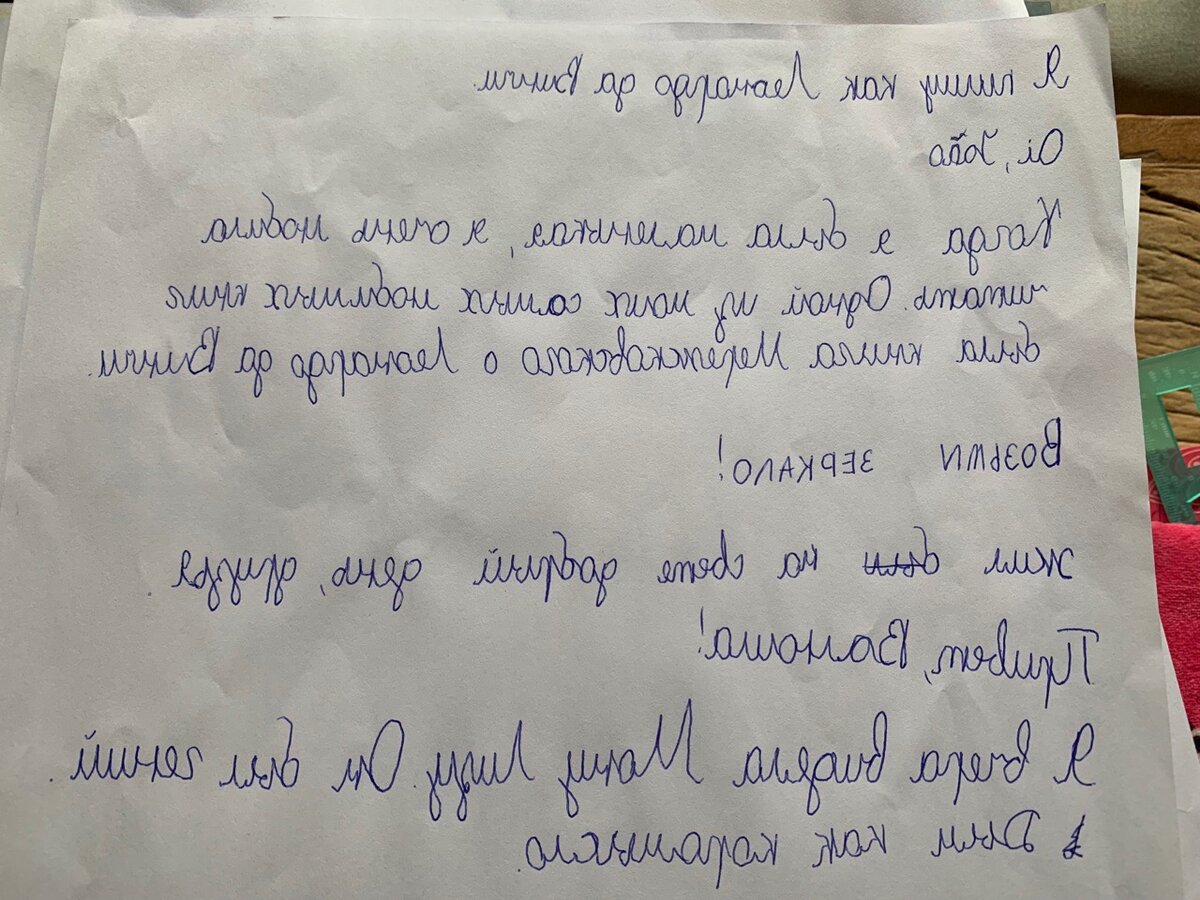 Я пишу как Леонардо да Винчи.
Когда я была маленькая, я очень любила
читать. Одной из моих самых любимых книг
была книга Мережковского о Леонардо да Винчи.
Возьми зеркало!
жил был на свете добрый день, друзья.
Привет, Ванюша!
Я вчера видела Мону Лизу. Он был гений.
Дым как коромысло.